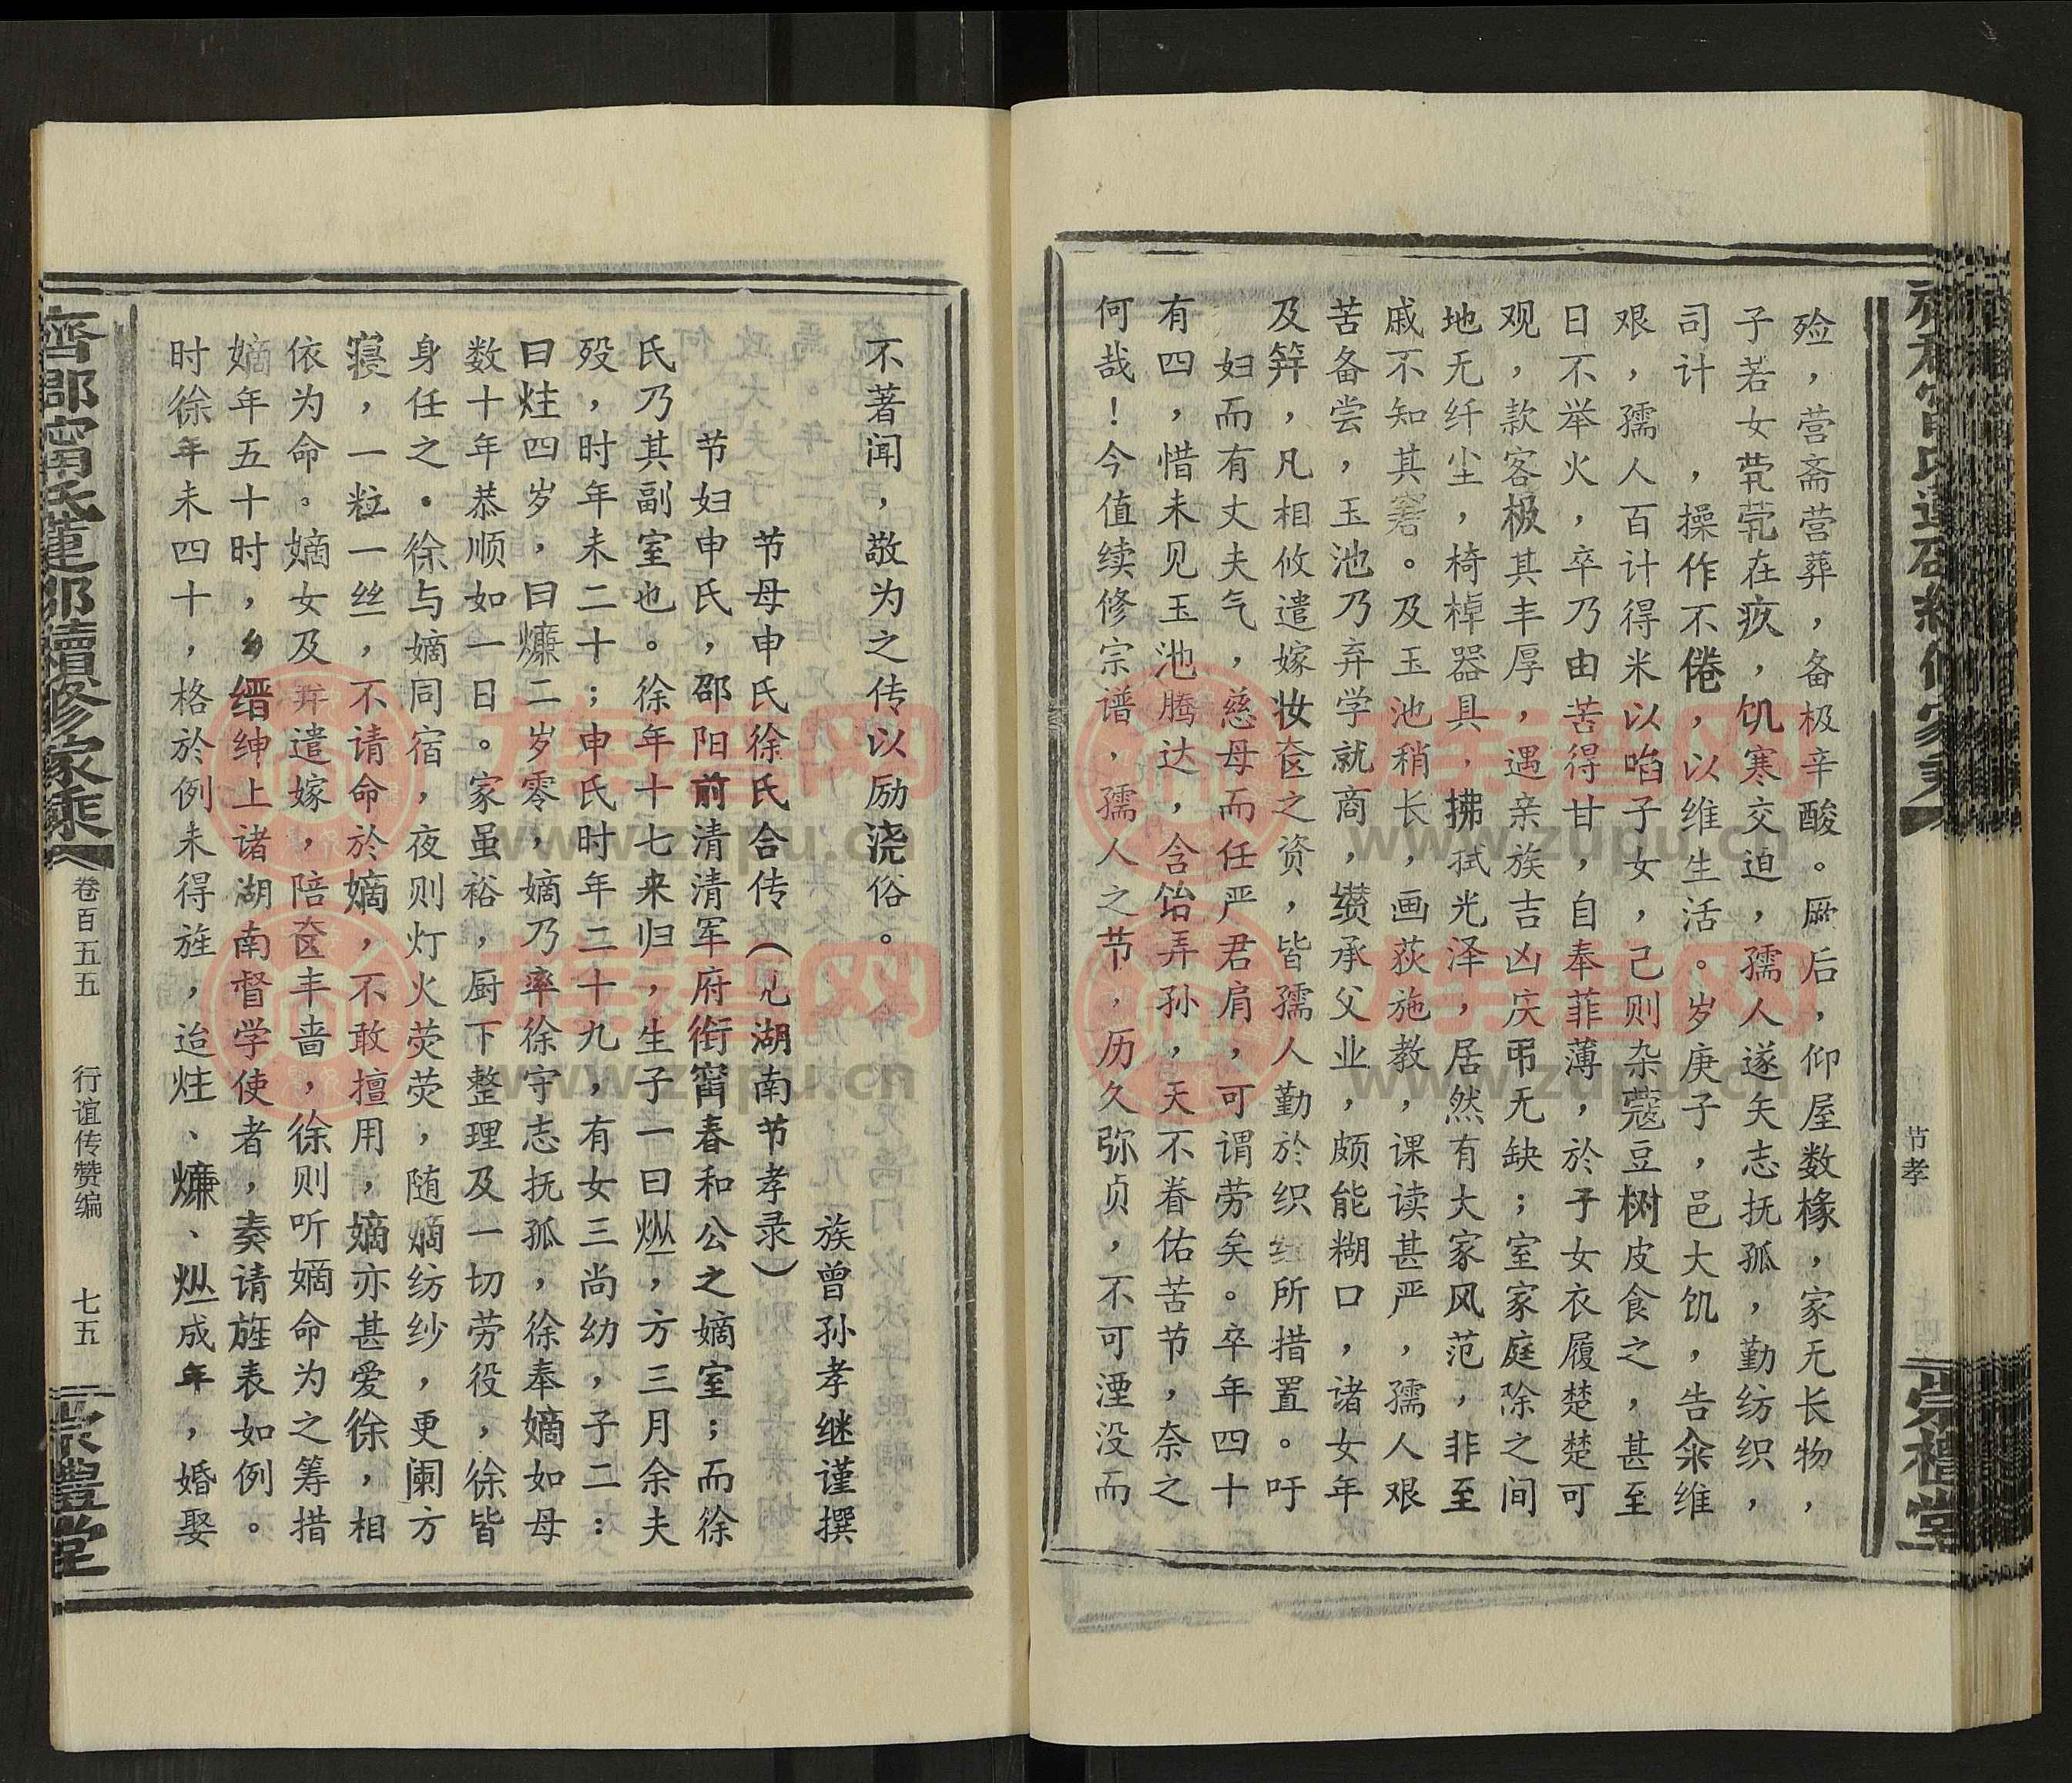 殓，营斋营葬，备极辛酸。厥后，仰屋数椽，家无长物，
子若女茕茕在疚，饥寒交迫，孺人遂矢志抚孤，勤纺织，
司计，操作不倦，以维生活。岁庚子，邑大饥，告籴维
艰，孺人百计得米以啗子女，己则杂蔻豆树皮食之，甚至
日不举火，卒乃由苦得甘，自奉菲薄，於子女衣履楚楚可
观，款客极其丰厚，遇亲族吉凶庆弔无缺；室家庭除之间
地无纤尘，椅棹器具，拂拭光泽，居然有大家风范，非至
戚不知其窘。及玉池稍长，画荻施教，课读甚严，孺人艰
苦备尝，玉池乃弃学就商，缵承父业，颇能糊口，诸女年
及笄，凡相攸遣嫁妆奁之资，皆孺人勤於织纴所措置。吁
妇而有丈夫气，慈母而任严君肩，可谓劳矣。卒年四十
有四，惜未见玉池腾达，含饴弄孙，天不眷佑苦节，奈之
何哉！今值续修宗谱，孺人之节，历久弥贞，不可湮没而
节孝
宗禮堂
不著闻，敬为之传以励浇俗。
族曾孙孝继谨撰
节母申氏徐氏合传（见湖南节孝录）
节妇申氏，邵阳前清清军府衔甯春和公之嫡室；而徐
氏乃其副室也。徐年十七来归，生子一曰㷰，方三月余夫
殁，时年未二十；申氏时年二十九，有女三尚幼，子二：
曰炷四岁，曰熑二岁零，嫡乃率徐守志抚孤，徐奉嫡如母
数十年恭顺如一日。家虽裕，厨下整理及一切劳役，徐皆
身任之。徐与嫡同宿，夜则灯火荧荧，随嫡纺纱，更阑方
寝，一粒一丝，不请命於嫡，不敢擅用，嫡亦甚爱徐，相
依为命。嫡女及笄遣嫁，陪奁丰啬，徐则听嫡命为之筹措
嫡年五十时，乡缙绅上诸湖南督学使者，奏请旌表如例。
时徐年未四十，格於例未得旌，迨炷、熑、㷰成年，婚娶
齊郡甯氏蓮邵續修家乘
卷百五五
行谊传赞编
七五
宗禮堂